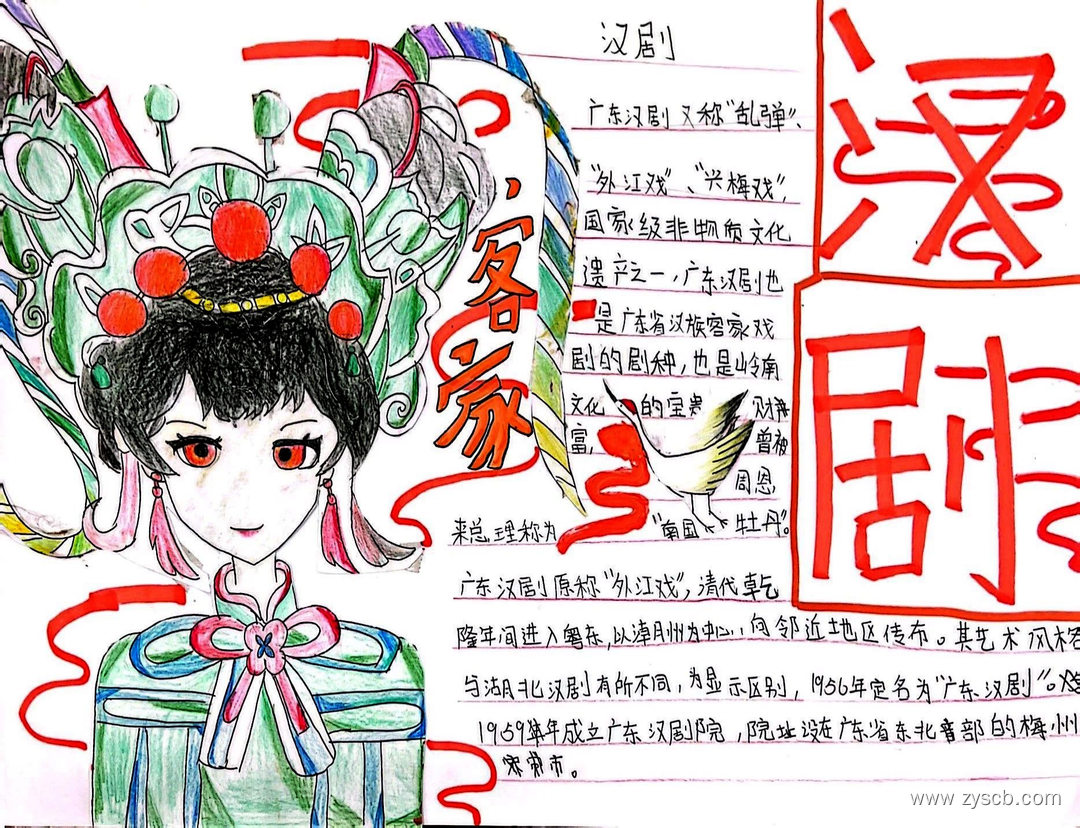 汉剧
广东汉剧又称"乱弹"、
"外江戏"、"兴梅戏",
国家级非物质文化
遗产之一,广东汉剧也
是广东省汉族客家戏
剧的剧种,也是岭南
文化的宝贵财
富,曾被
周恩
来总理称为"南国牡丹"。
广东汉剧原称"外江戏",清代乾
隆年间进入粤东,以州为中心,向邻近地区传布。其艺术风格
与湖北汉剧有所不同,为显示区别,1956年定名为"广东汉剧"。
1959年成立广东汉剧院,院址设在广东省东北部的梅州
市。
客家
汉
剧
www.zyscb.com